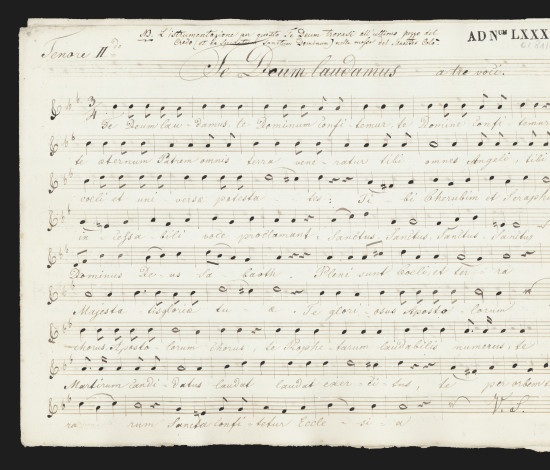 NB. L'istrumentazione per questo Te Deum trovasi all'ultimo pezzo del
Credo, et in Spiritum Sanctum Dominum) nella major del Maestro Solo.
AD Num LXXX
Tenore II.do
Te Deum laudamus a tre voci.
3/4
Te Deum lau - damus, te Dominum confi temur te Dominu confi temur
te aternum Patrem omnis terra vene - ratur tibi omnes Angeli, tibi
coeli et uni versa potesta - tes: Ti - bi Cherubim et Seraphi
in - cessa - bili voce proclamant: Sanctus, Sanctus, Sanctus, Sanctus
Dominus De - us Sa - baoth. Pleni sunt coeli et ter - ra
Majesta - tis gloria tu - a. Te glori - osus Aposto - lorum
chorus, Aposto lorum chorus, te Prophe - tarum laudabilis numerus, te
Martirum candi - datus laudat laudat exer - ci - tus, te per orbem
rarum Sancta confi - tetur Eccle - si - a
V. S.